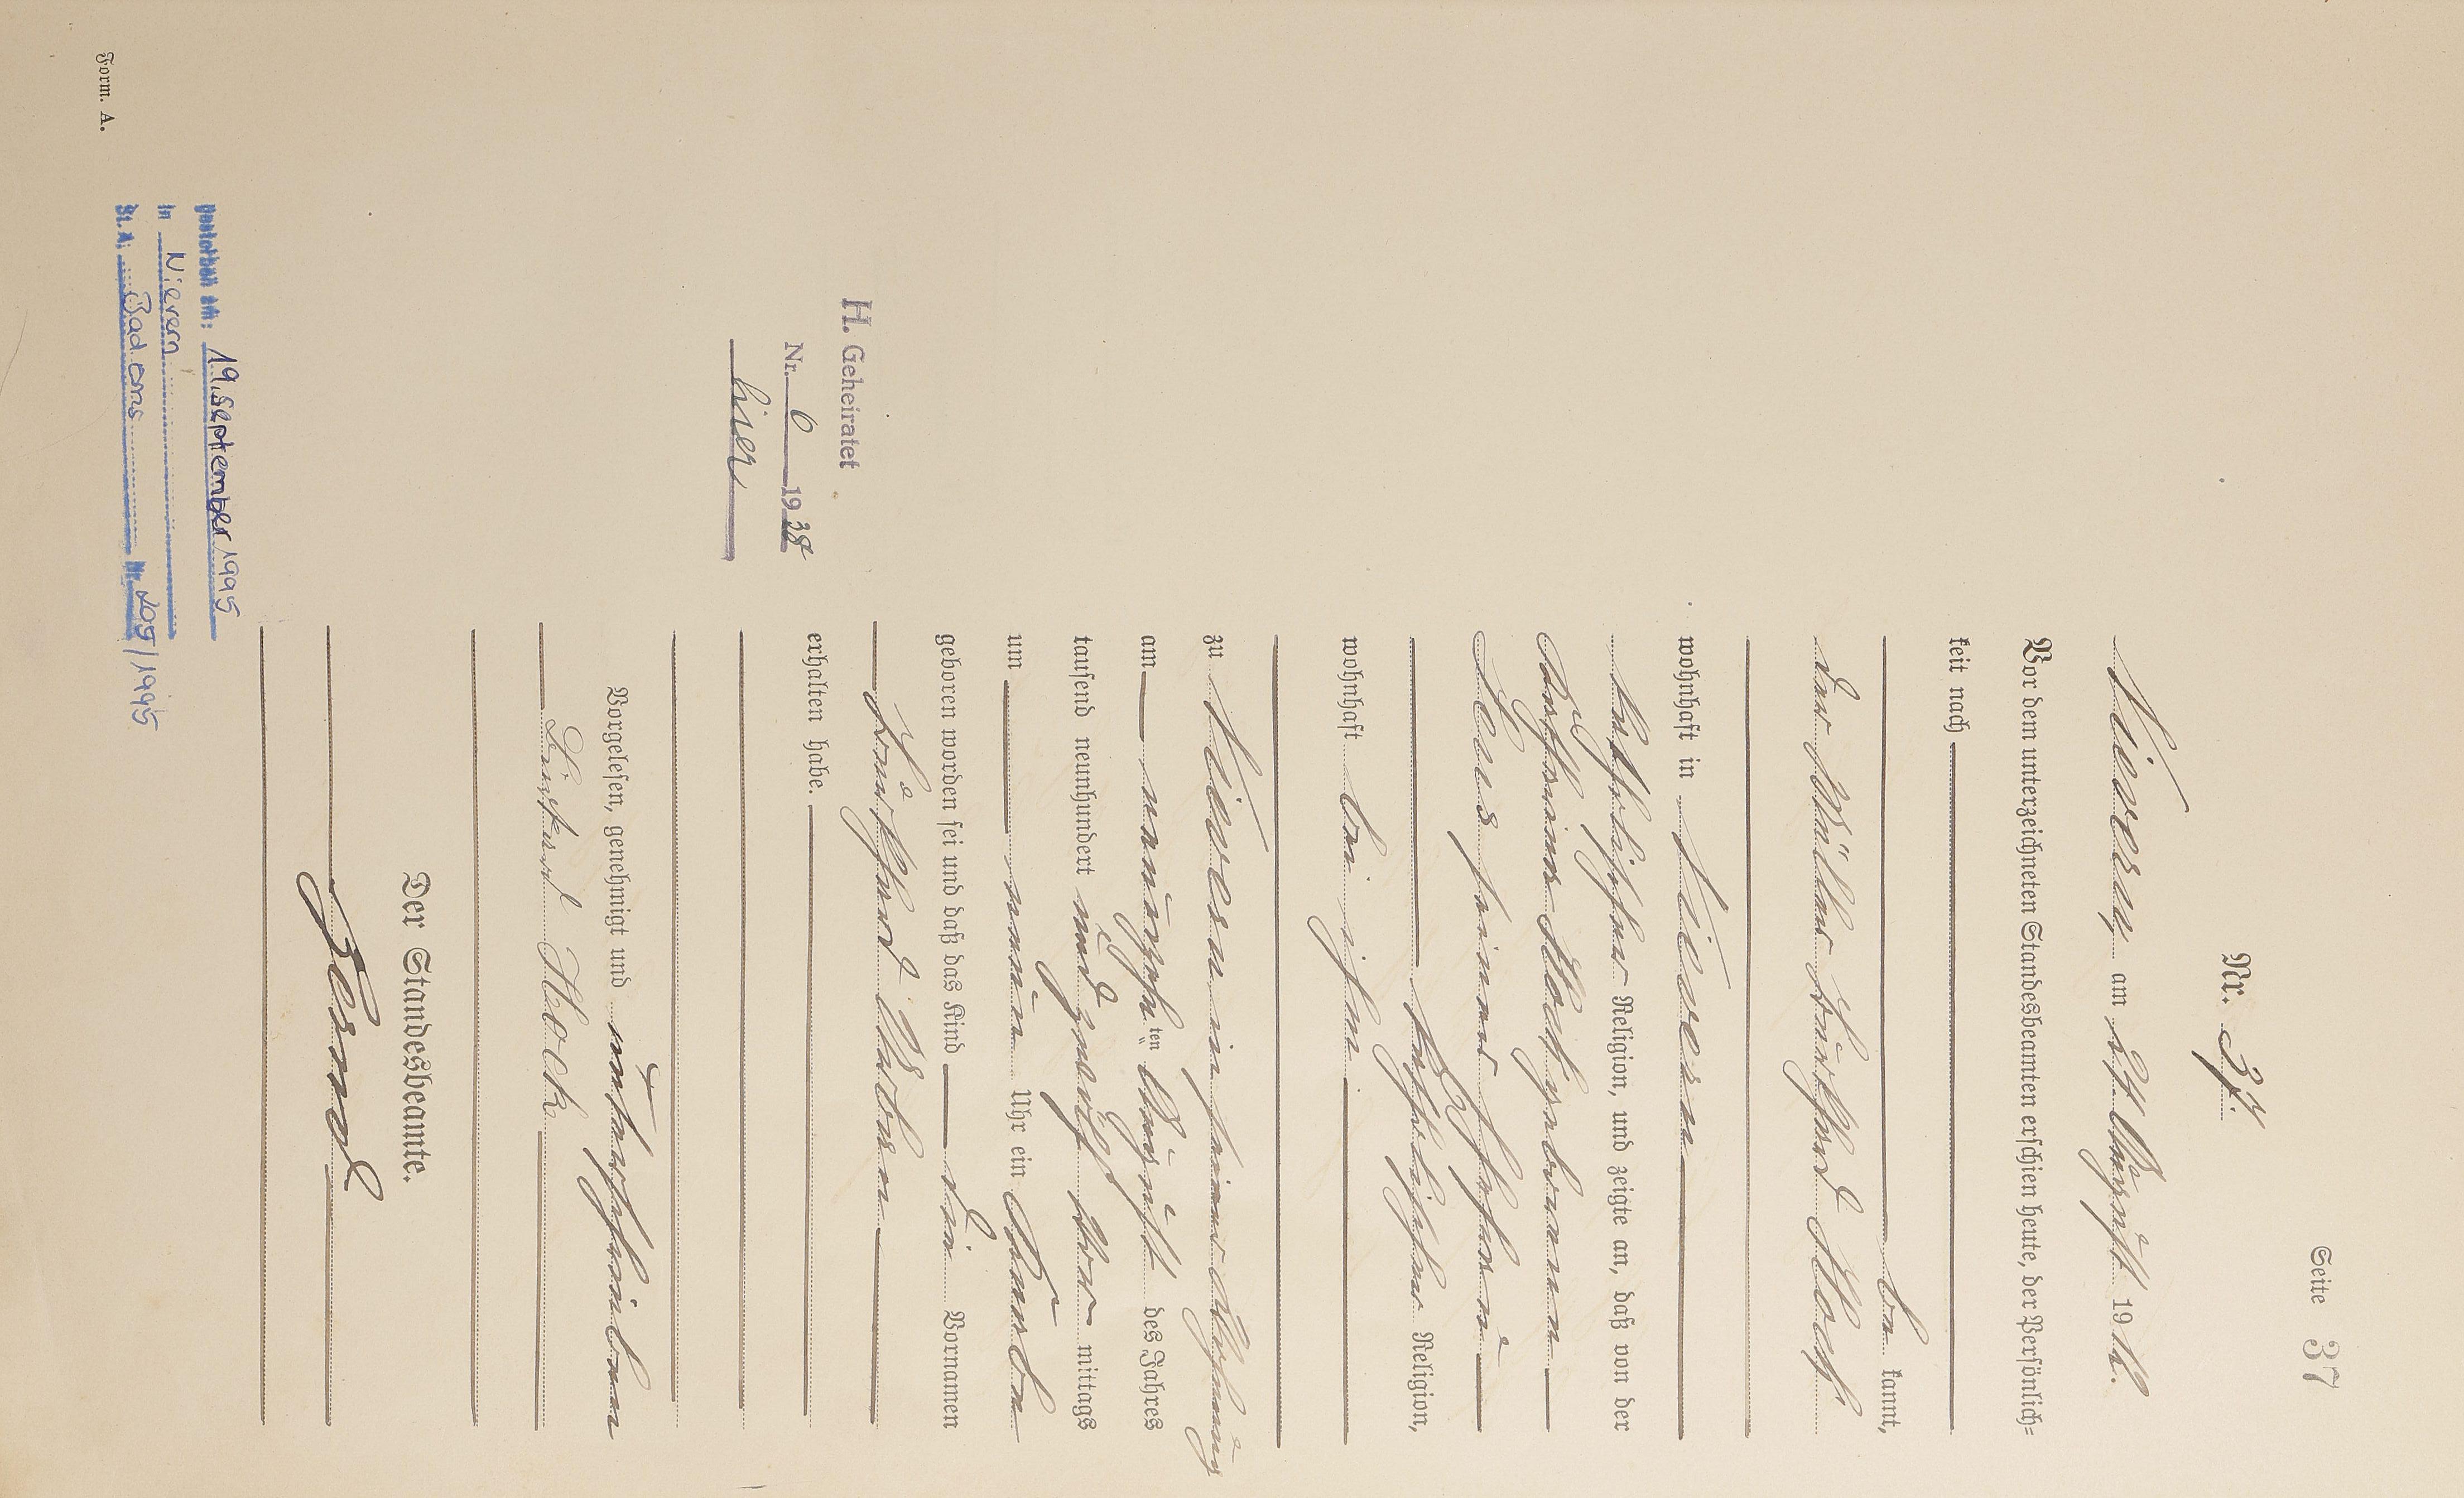 Seite 37
Nr. 37.
Nievern, am 21. August 1912.
Vor dem unterzeichneten Standesbeamten erschien heute, der Persönlich=
keit nach
be kannt,
der Müller Burkhard Stock
wohnhaft in Nievern
katholischer Religion, und zeigte an, daß von der
Katharina Stock geborenen
seiner Ehefrau
katholischer Religion,
wohnhaft bei ihm
zu Nievern in seiner Wohnung
am neunzehn ten August des Jahres
tausend neunhundert und zwölf Vor mittags
um neun Uhr ein Knabe
geboren worden sei und daß das Kind die Vornamen
Burkhard
erhalten habe.
Vorgelesen, genehmigt und unterschrieben
Burkard Stock
Der Standesbeamte.
H. Geheiratet
Nr. 6 1938
hier
19. September 1995
in Nievern
St. A: Bad Ems Nr. 205/1995
Form. A.